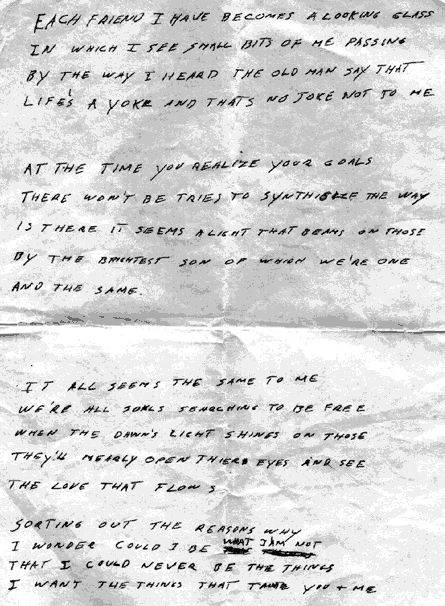 EACH FRIEND I HAVE BECOMES A LOOKING GLASS
IN WHICH I SEE SMALL BITS OF ME PASSING
BY THE WAY I HEARD THE OLD MAN SAY THAT
LIFE'S A YOKE AND THATS NO JOKE NOT TO ME
AT THE TIME YOU REALIZE YOUR GOALS
THERE WON'T BE TRIES TO THE WAY
IS THERE IT SEEMS A LIGHT THAT BEAMS ON THOSE
BY THE BRIGHTEST SON OF WHICH WE'RE ONE
AND THE SAME.
IT ALL SEEMS THE SAME TO ME
WE'RE ALL SOULS SEARCHING TO BE FREE
WHEN THE DAWN'S LIGHT SHINES ON THOSE
THEY'LL MEARLY OPEN THIER EYES AND SEE
THE LOVE THAT FLOWS
SORTING OUT THE REASONS WHY
I WONDER COULD I BE WHAT I AM NOT
THAT I COULD NEVER BE THE THINGS
I WANT THE THINGS THAT YOU + ME